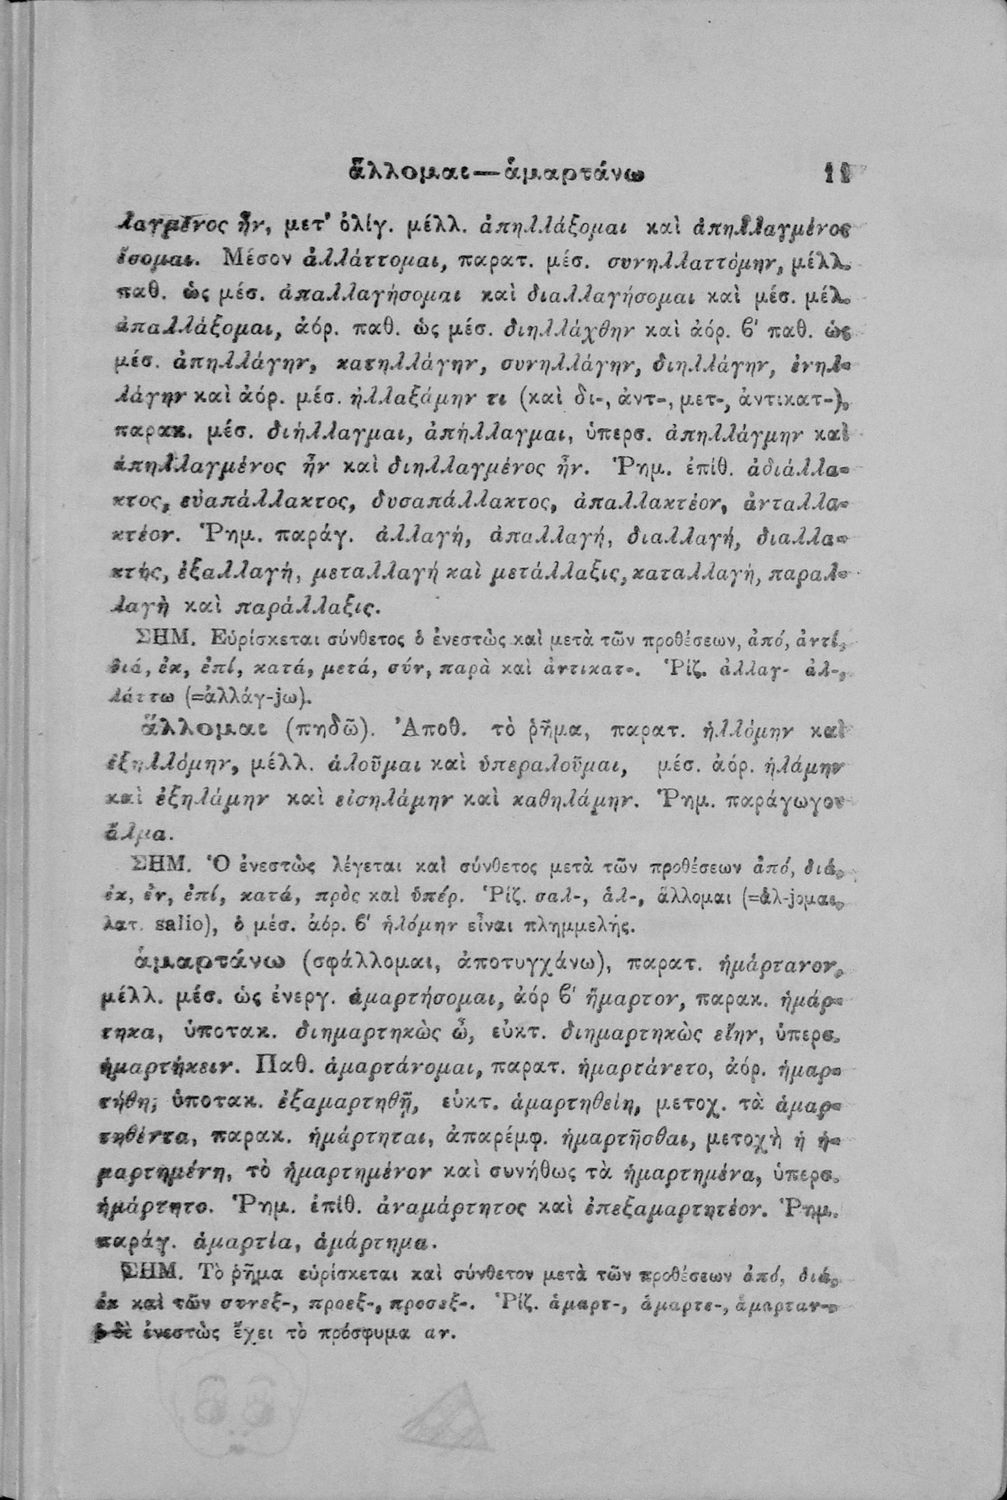 ἅλλομαι—ἁμαρτάνω 11
λαγμένος ἦν, μετ' ὀλίγ. μέλλ. ἀπηλλάξομαι καὶ ἀπηλλαγμένος
ἔσομαι. Μέσον ἀλλάττομαι, παρατ. μέσ. συνηλλαττόμην, μέλλ.
παθ. ὡς μέσ. ἀπαλλαγήσομαι καὶ διαλλαγήσομαι καὶ μέσ. μέλ.
ἀπαλλάξομαι, ἀόρ. παθ. ὡς μέσ. διηλλάχθην καὶ ἀόρ. β' παθ. ὡς
μέσ. ἀπηλλάγην, κατηλλάγην, συνηλλάγην, διηλλάγην, ἐνηλ-
λάγην καὶ ἀόρ. μέσ. ἠλλαξάμην τι (καὶ δι-, ἀντ-, μετ-, ἀντικατ-),
παρακ. μέσ. διήλλαγμαι, ἀπήλλαγμαι, ὑπερσ. ἀπηλλάγμην καὶ
ἀπηλλαγμένος ἦν καὶ διηλλαγμένος ἦν. Ῥημ. ἐπίθ. ἀδιάλλα-
κτος, εὐαπάλλακτος, δυσαπάλλακτος, ἀπαλλακτέον, ἀνταλλα-
κτέον. Ῥημ. παράγ. ἀλλαγή, ἀπαλλαγή, διαλλαγή, διαλλα-
κτής, ἐξαλλαγή, μεταλλαγή καὶ μετάλλαξις, καταλλαγή, παραλ-
λαγὴ καὶ παράλλαξις.
ΣΗΜ. Εὑρίσκεται σύνθετος ὁ ἐνεστὼς καὶ μετὰ τῶν προθέσεων, ἀπό, ἀντί,
διά, ἐκ, ἐπί, κατά, μετά, σύν, παρὰ καὶ ἀντικατ-. Ῥίζ. ἀλλαγ- ἀλ-
λάττω (=ἀλλάγ-jω).
ἅλλομαι (πηδῶ). Ἀποθ. τὸ ῥῆμα, παρατ. ἡλλόμην καὶ
ἐξηλλόμην, μέλλ. ἁλοῦμαι καὶ ὑπεραλοῦμαι, μέσ. ἀόρ. ἡλάμην
καὶ ἐξηλάμην καὶ εἰσηλάμην καὶ καθηλάμην. Ῥημ. παράγωγον
ἅλμα.
ΣΗΜ. Ὁ ἐνεστὼς λέγεται καὶ σύνθετος μετὰ τῶν προθέσεων ἀπό, διά,
ἐκ, ἐν, ἐπί, κατά, πρὸς καὶ ὑπέρ. Ῥίζ. σαλ-, ἁλ-, ἅλλομαι (=ἅλ-jομαι,
λατ. salio), ὁ μέσ. ἀόρ. β' ἡλόμην εἶναι πλημμελής.
ἁμαρτάνω (σφάλλομαι, ἀποτυγχάνω), παρατ. ἡμάρτανον,
μέλλ. μέσ. ὡς ἐνεργ. ἁμαρτήσομαι, ἀόρ β' ἥμαρτον, παρακ. ἡμάρ-
τηκα, ὑποτακ. διημαρτηκὼς ὦ, εὐκτ. διημαρτηκὼς εἴην, ὑπερσ.
ἡμαρτήκειν. Παθ. ἁμαρτάνομαι, παρατ. ἡμαρτάνετο, ἀόρ. ἡμαρ-
τήθη, ὑποτακ. ἐξαμαρτηθῇ, εὐκτ. ἁμαρτηθείη, μετοχ. τὰ ἁμαρ-
τηθέντα, παρακ. ἡμάρτηται, ἀπαρέμφ. ἡμαρτῆσθαι, μετοχὴ ἡ ἡ-
μαρτημένη, τὸ ἡμαρτημένον καὶ συνήθως τὰ ἡμαρτημένα, ὑπερσ.
ἡμάρτητο. Ῥημ. ἐπίθ. ἀναμάρτητος καὶ ἐπεξαμαρτητέον. Ῥημ.
παράγ. ἁμαρτία, ἁμάρτημα.
ΣΗΜ. Τὸ ῥῆμα εὑρίσκεται καὶ σύνθετον μετὰ τῶν προθέσεων ἀπό, διά,
ἐκ καὶ τῶν συνεξ-, προεξ-, προσεξ-. Ῥίζ. ἁμαρτ-, ἁμαρτε-, ἁμαρταν-
ὁ δὲ ἐνεστὼς ἔχει τὸ πρόσφυμα αν.